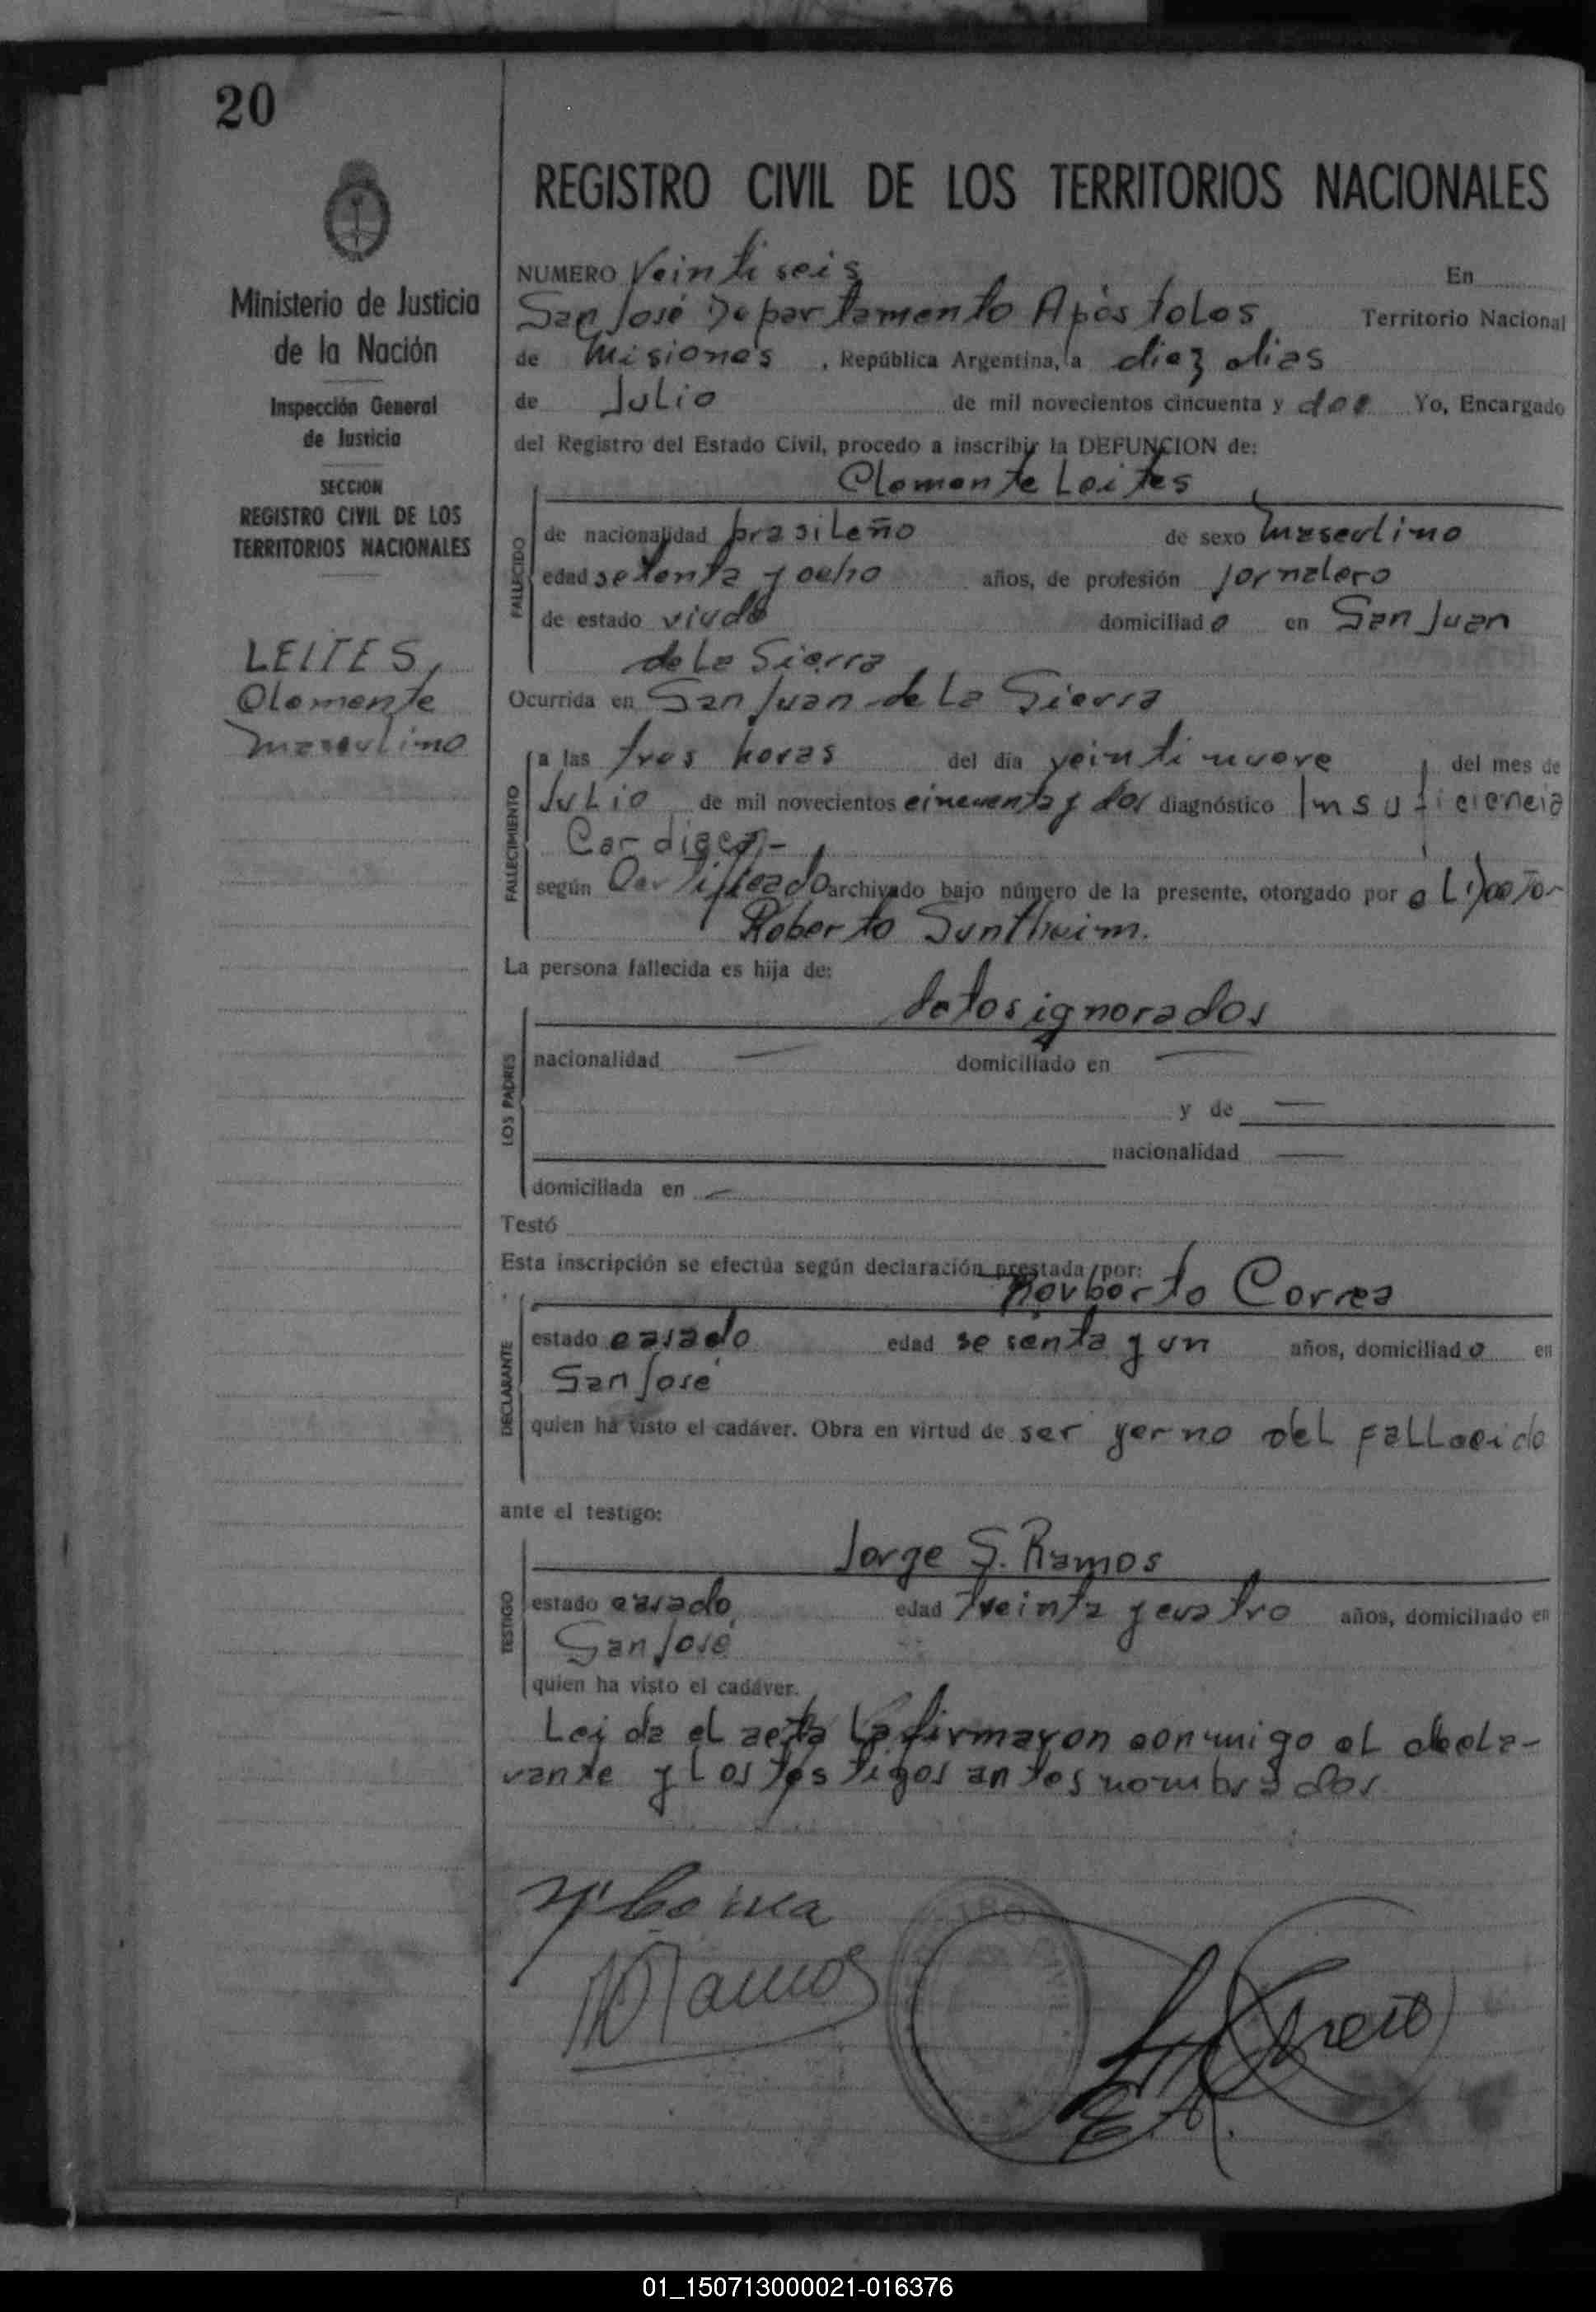 20
Ministerio de Justicia
de la Nación
Inspección General
de Justicia
SECCION
REGISTRO CIVIL DE LOS
TERRITORIOS NACIONALES
LEITES,
Clemente
masculino
REGISTRO CIVIL DE LOS TERRITORIOS NACIONALES
NUMERO Veinti seis En
San José Departamento Apòstoles Territorio Nacional
de Misiones, República Argentina, a diez dias
de Julio de mil novecientos cincuenta y dos Yo, Encargado
del Registro del Estado Civil, procedo a inscribir la DEFUNCION de:
Clemente Leites
FALLECIDO
de nacionalidad brasileño de sexo masculino
edad setenta y ocho años, de profesión Jornalero
de estado viudo domiciliado en San Juan
de la Sierra
Ocurrida en San Juan de la Sierra
FALLECIMIENTO
a las tres horas del día veinti nueve del mes de
Julio de mil novecientos cincuenta y dos diagnóstico Insuficiencia
Cardiaca-
según Certificado archivado bajo número de la presente, otorgado por el Doctor
Roberto Suntheim.
La persona fallecida es hija de:
LOS PADRES
datos ignorados
nacionalidad — domiciliado en —
y de —
nacionalidad —
domiciliada en —
Testó
Esta inscripción se efectúa según declaración prestada por:
DECLARANTE
Norberto Correa
estado casado edad sesenta y un años, domiciliado en
San José
quien ha visto el cadáver. Obra en virtud de ser yerno del fallecido
ante el testigo:
TESTIGO
Jorge S. Ramos
estado casado edad treinta y cuatro años, domiciliado en
San José
quien ha visto el cadáver.
Leida el acta la firmaron conmigo el decla-
rante y los testigos antes nombrados
Ramos
01_150713000021-016376